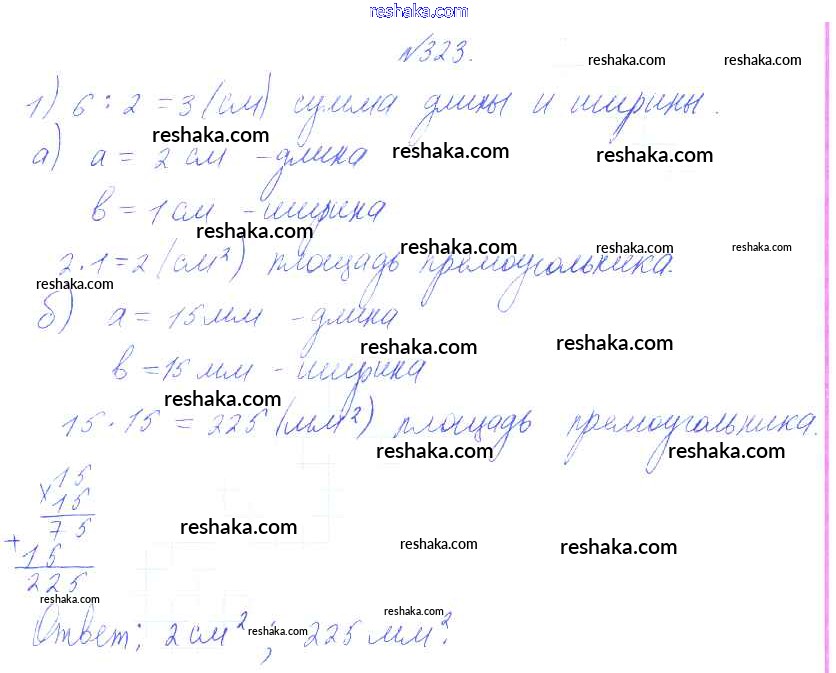 reshaka.com
№323.
reshaka.com reshaka.com
1) 6 : 2 = 3 (см) сумма длины и ширины.
reshaka.com reshaka.com reshaka.com
а) а = 2 см - длина
в = 1 см - ширина
reshaka.com reshaka.com reshaka.com reshaka.com
2 · 1 = 2 (см²) площадь прямоугольника.
reshaka.com
б) а = 15 мм - длина
reshaka.com reshaka.com
в = 15 мм - ширина
reshaka.com
15 · 15 = 225 (мм²) площадь прямоугольника.
reshaka.com reshaka.com
× 15
15
75
+ 15
225
reshaka.com reshaka.com reshaka.com
reshaka.com reshaka.com
Ответ: 2 см²; 225 мм².
reshaka.com